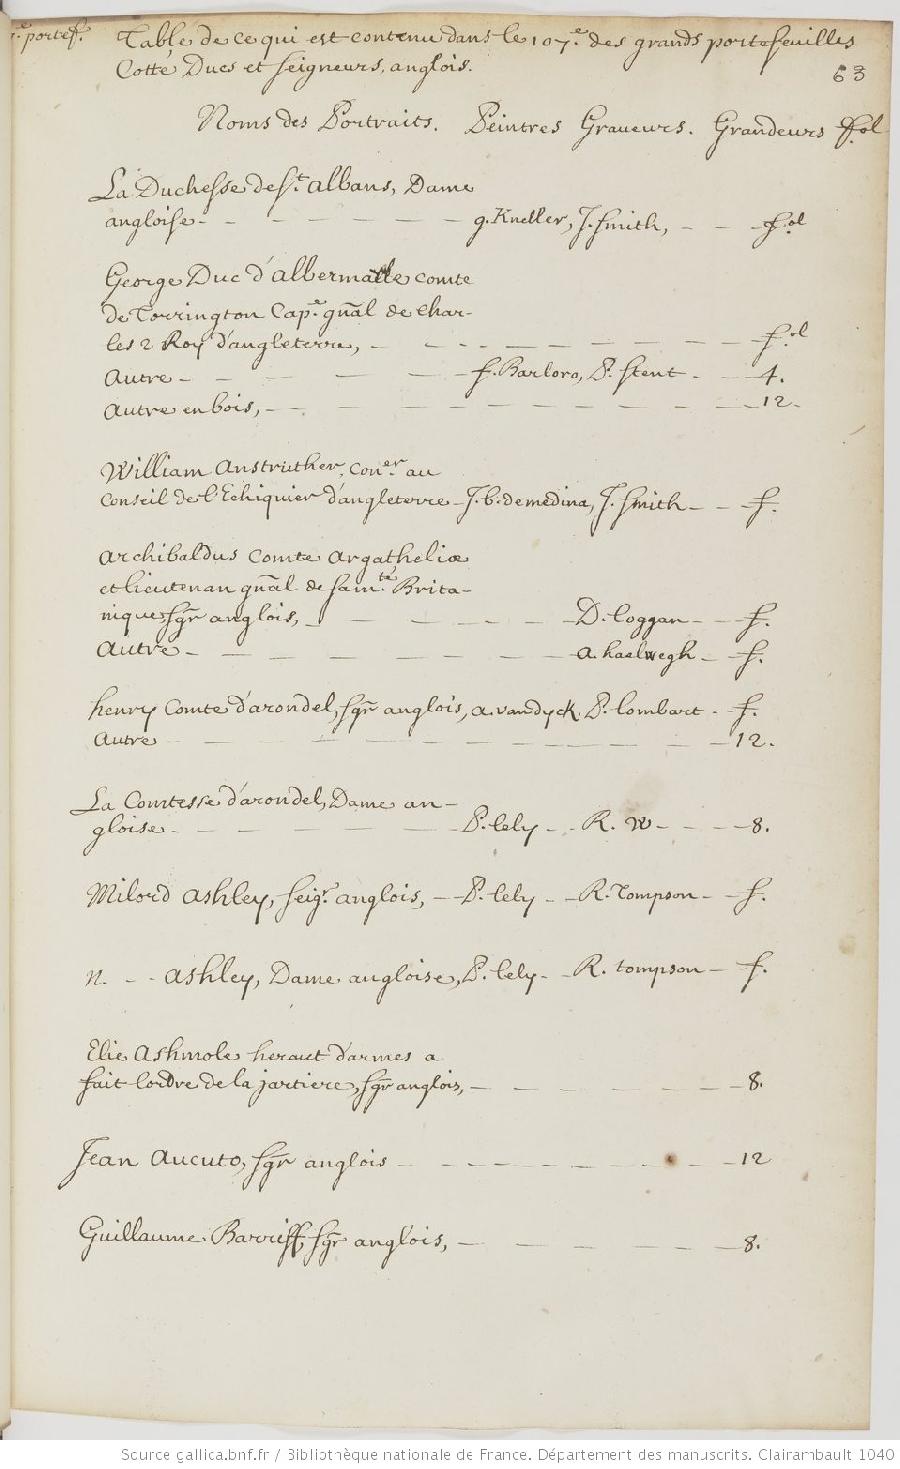 portef. Table de ce qui est contenu dans le 107.e des grands portefeuilles
Cotté Ducs et seigneurs, anglois.
63
Noms des Portraits. Peintres Graveurs. Grandeurs fol
La Duchesse de St. albans, Dame
angloise - - - - - - - g. Kneller, J. Smith, - - - f.ol
George Duc d'albermalle comte
de Torrington Cap.e gnãl de Char-
les 2 Roy d'angleterre, - - - - - - - - - f.ol
Autre - - - - - f. Barloro, P. Stent - - 4.
Autre en bois, - - - - - - - - - 12.
William Anstruther, Con.er au
Conseil de l'Echiquier d'angleterre - J. b. de medina, J. Smith - - f.
Archibaldus Comte Argatheliæ
et lieutenan gnãl de sa m.té Brita-
nique, sgr anglois, - - - - - - D. loggan - - f.
Autre - - - - - - - - a. haelwegh - f.
henry Comte d'arondel, sgr anglois, a. vandyck P. lombart - f.
Autre - - - - - - - - - - 12.
La Comtesse d'arondel, Dame an-
gloise - - - - - - P. lely - - R. W - - - 8.
Milord Ashley, seigr. anglois, - P. lely - - R. Tompson - - f.
n. - - ashley, Dame angloise, P. lely - - R. tompson - f.
Elie Ashmole heraut d'armes a
fait lordre de la jartiere, sgr anglois, - - - - - - - 8.
Jean Aucuto, sgr anglois - - - - - - - - 12
Guillaume Barriff, sgr anglois, - - - - - 8.
Source gallica.bnf.fr / Bibliothèque nationale de France. Département des manuscrits. Clairambault 1040